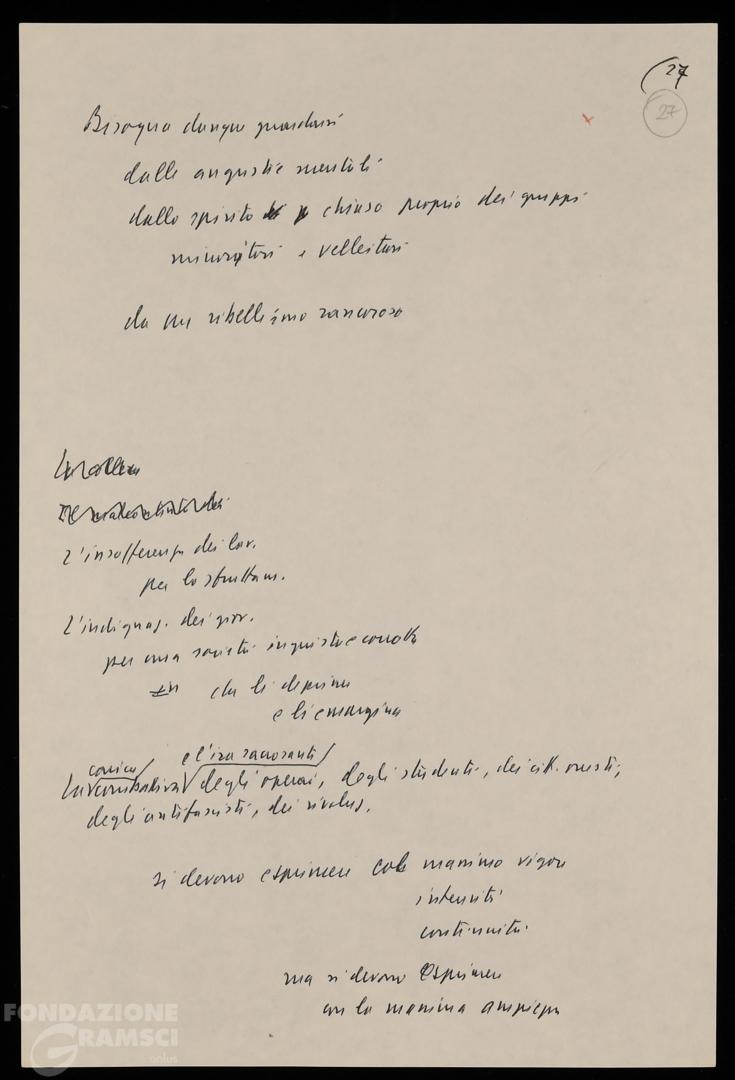 27
27
Bisogna dunque guardarsi
dalle angustie mentali
dallo spirito chiuso proprio dei gruppi
minoritari e velleitari
da un ribellismo rancoroso
L'insofferenza dei lav.
per lo sfruttam.
L'indignaz. dei giov.
per una società ingiusta e corrotta
che li deprime
e li emargina
carica e l'ira sacrosanta
La combattiva degli operai, degli studenti, dei citt. onesti,
degli antifascisti, dei rivoluz.
si devono esprimere col massimo vigore
intensità
continuità
ma si devono esprimere
con la massima ampiezza
FONDAZIONE
GRAMSCI
onlus